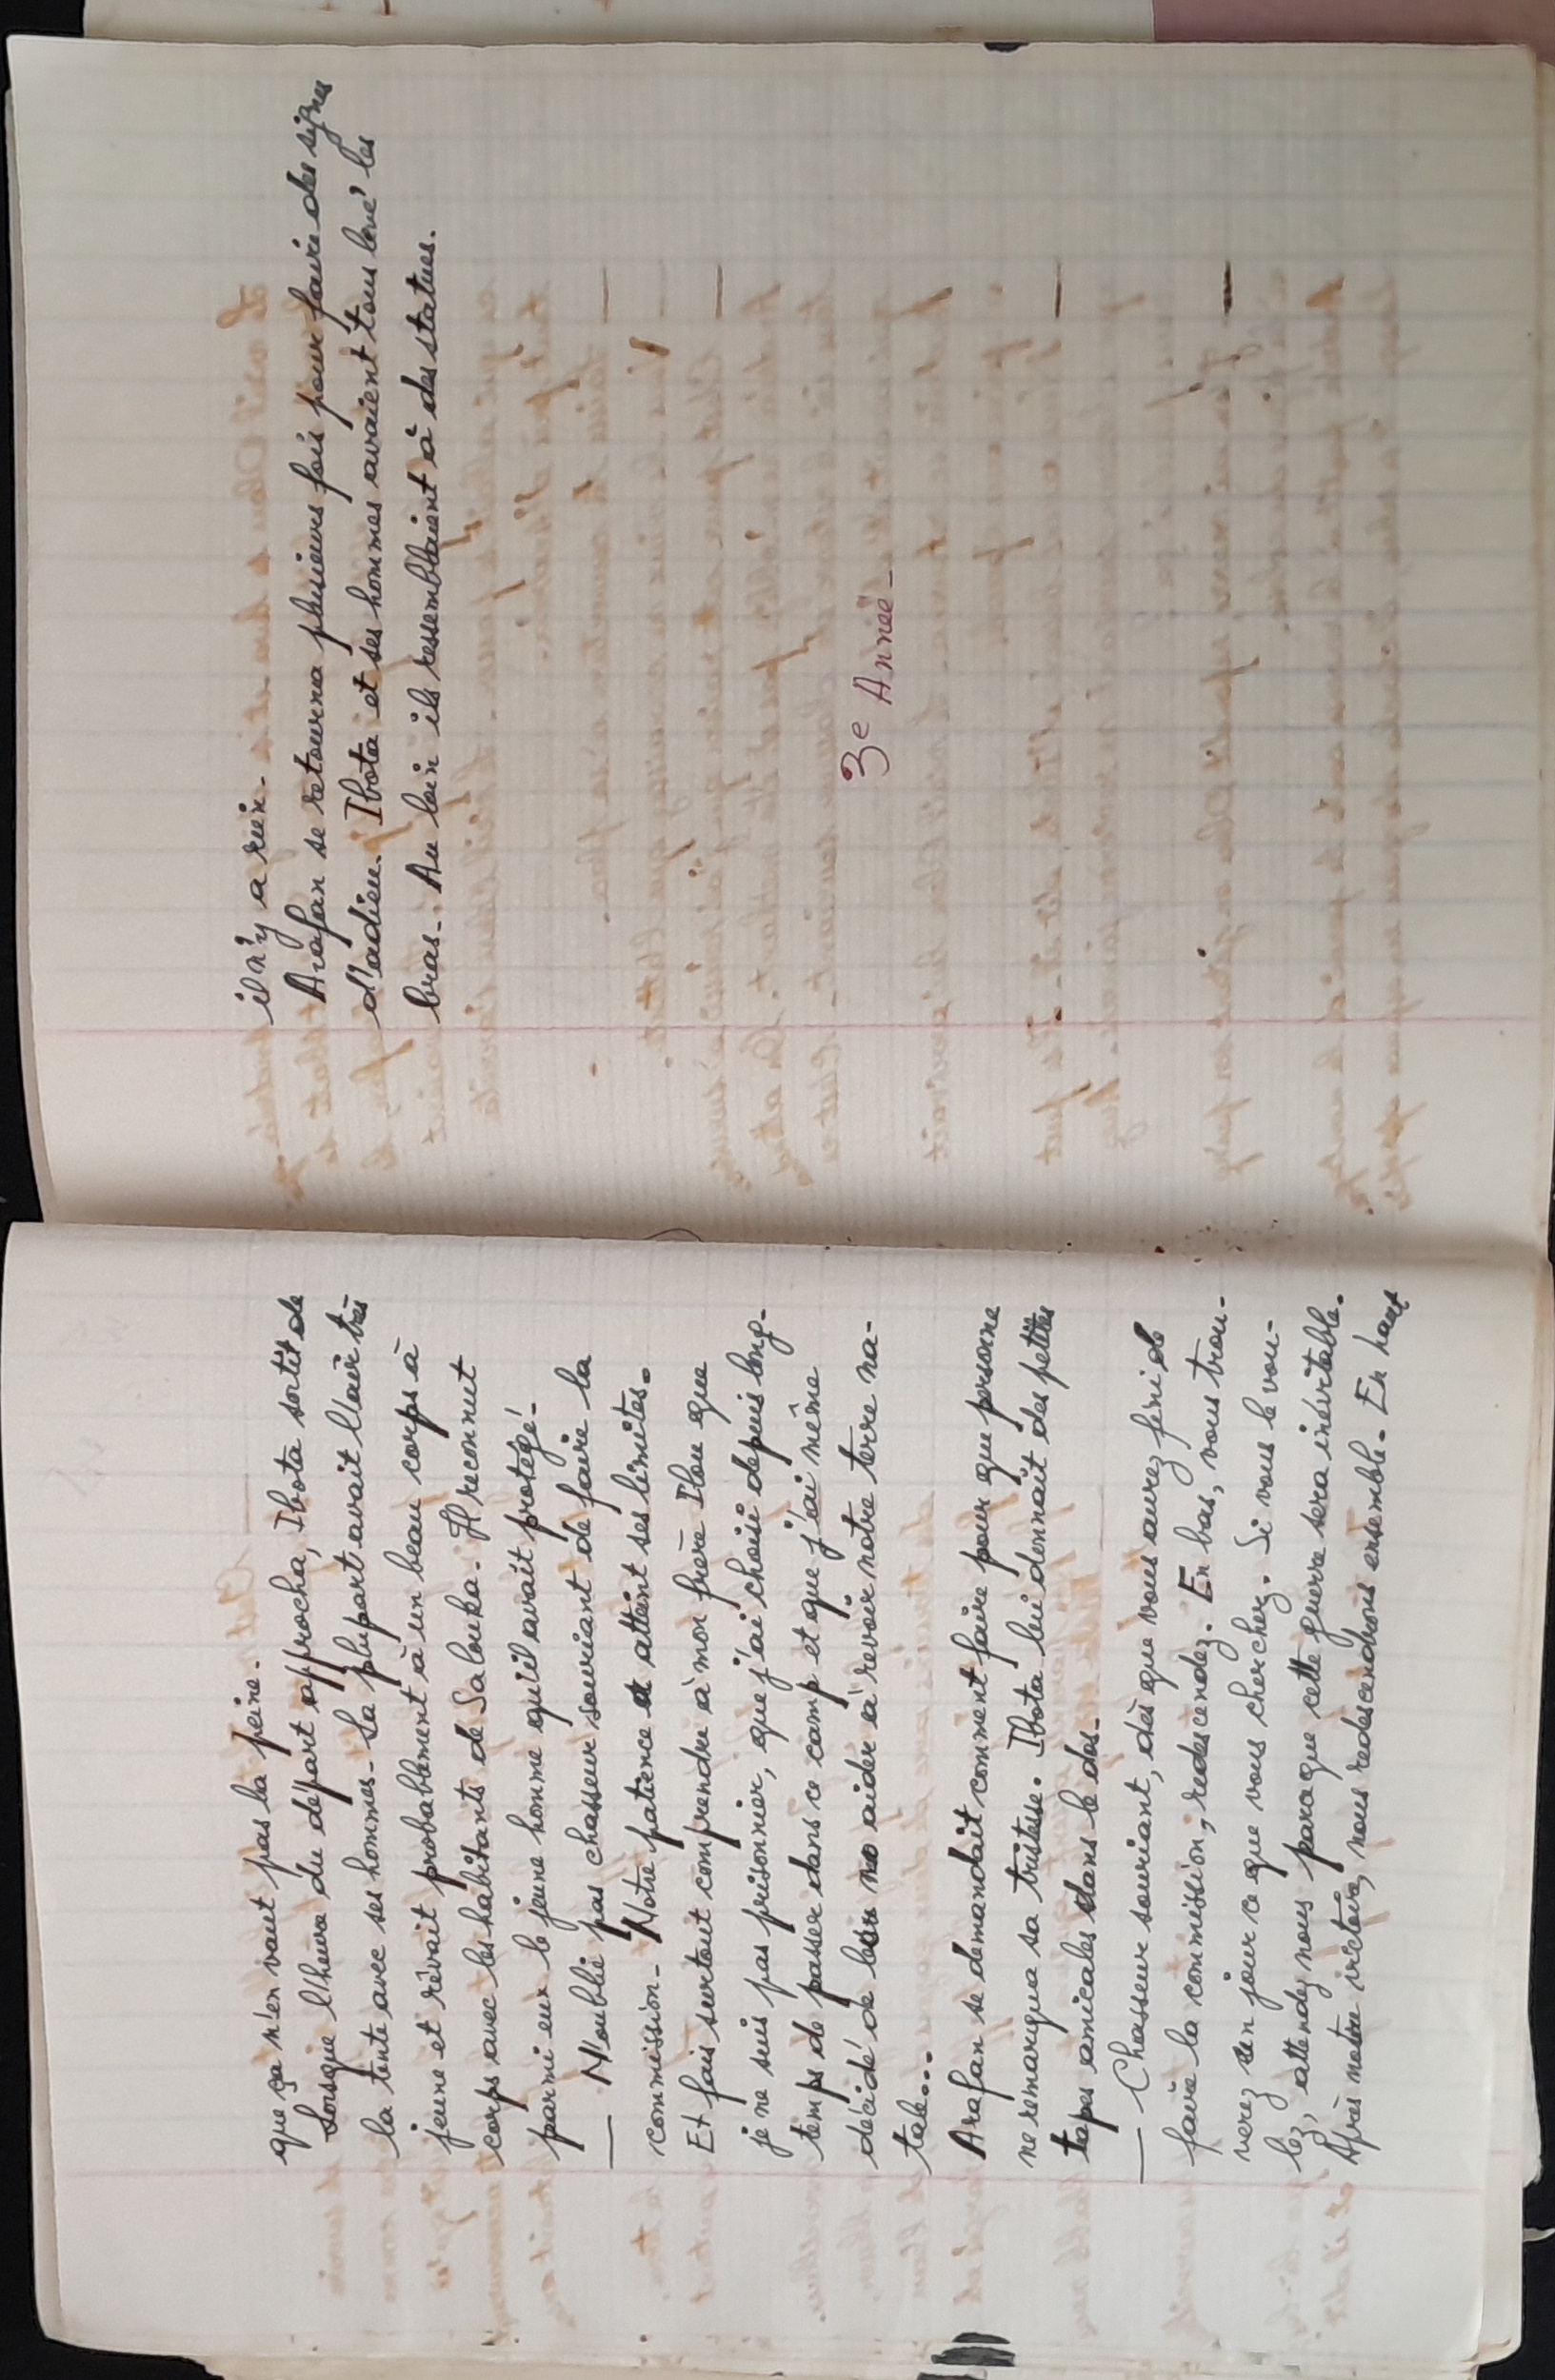 que ça n'en vaut pas la peine.
Lorsque l'heure du départ approcha, Ibota sortit de
la tente avec ses hommes. La plupart avait l'air très
jeune et rêvait probablement à un beau corps à
corps avec les habitants de Salouka. Il reconnut
parmi eux le jeune homme qu'il avait protégé.
— N'oublie pas chasseur souriant de faire la
commission. Notre patience a atteint ses limites.
Et fais surtout comprendre à mon frère Ilou que
je ne suis pas prisonnier, que j'ai choisi depuis long-
temps de passer dans ce camp et que j'ai même
décidé de les aider à revoir notre terre na-
tale...
Arafan se demandait comment faire pour que personne
ne remarqua sa tristesse. Ibota lui donnait des petites
tapes amicales dans le dos.
— Chasseur souriant, dès que vous aurez fini de
faire la commission, redescendez. En bas, vous trou-
verez un jour ce que vous cherchez. Si vous le vou-
lez, attendez nous parce que cette guerre sera inévitable.
Après notre victoire, nous redescendrons ensemble. En haut
il n'y a rien.
Arafan se retourna plusieurs fois pour faire des signes
d'adieu. Ibota et ses hommes avaient tous levé les
bras. Au loin ils ressemblaient à des statues.
3e Année